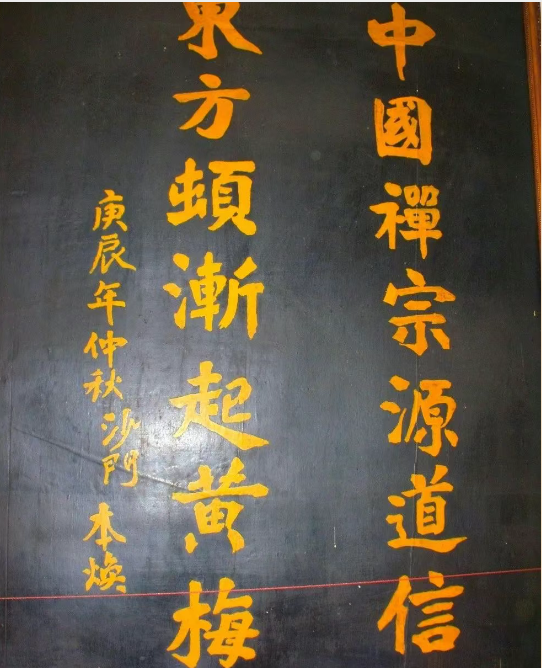 中國禪宗源道信
東方頓漸起黃梅
庚辰年仲秋沙門本煥